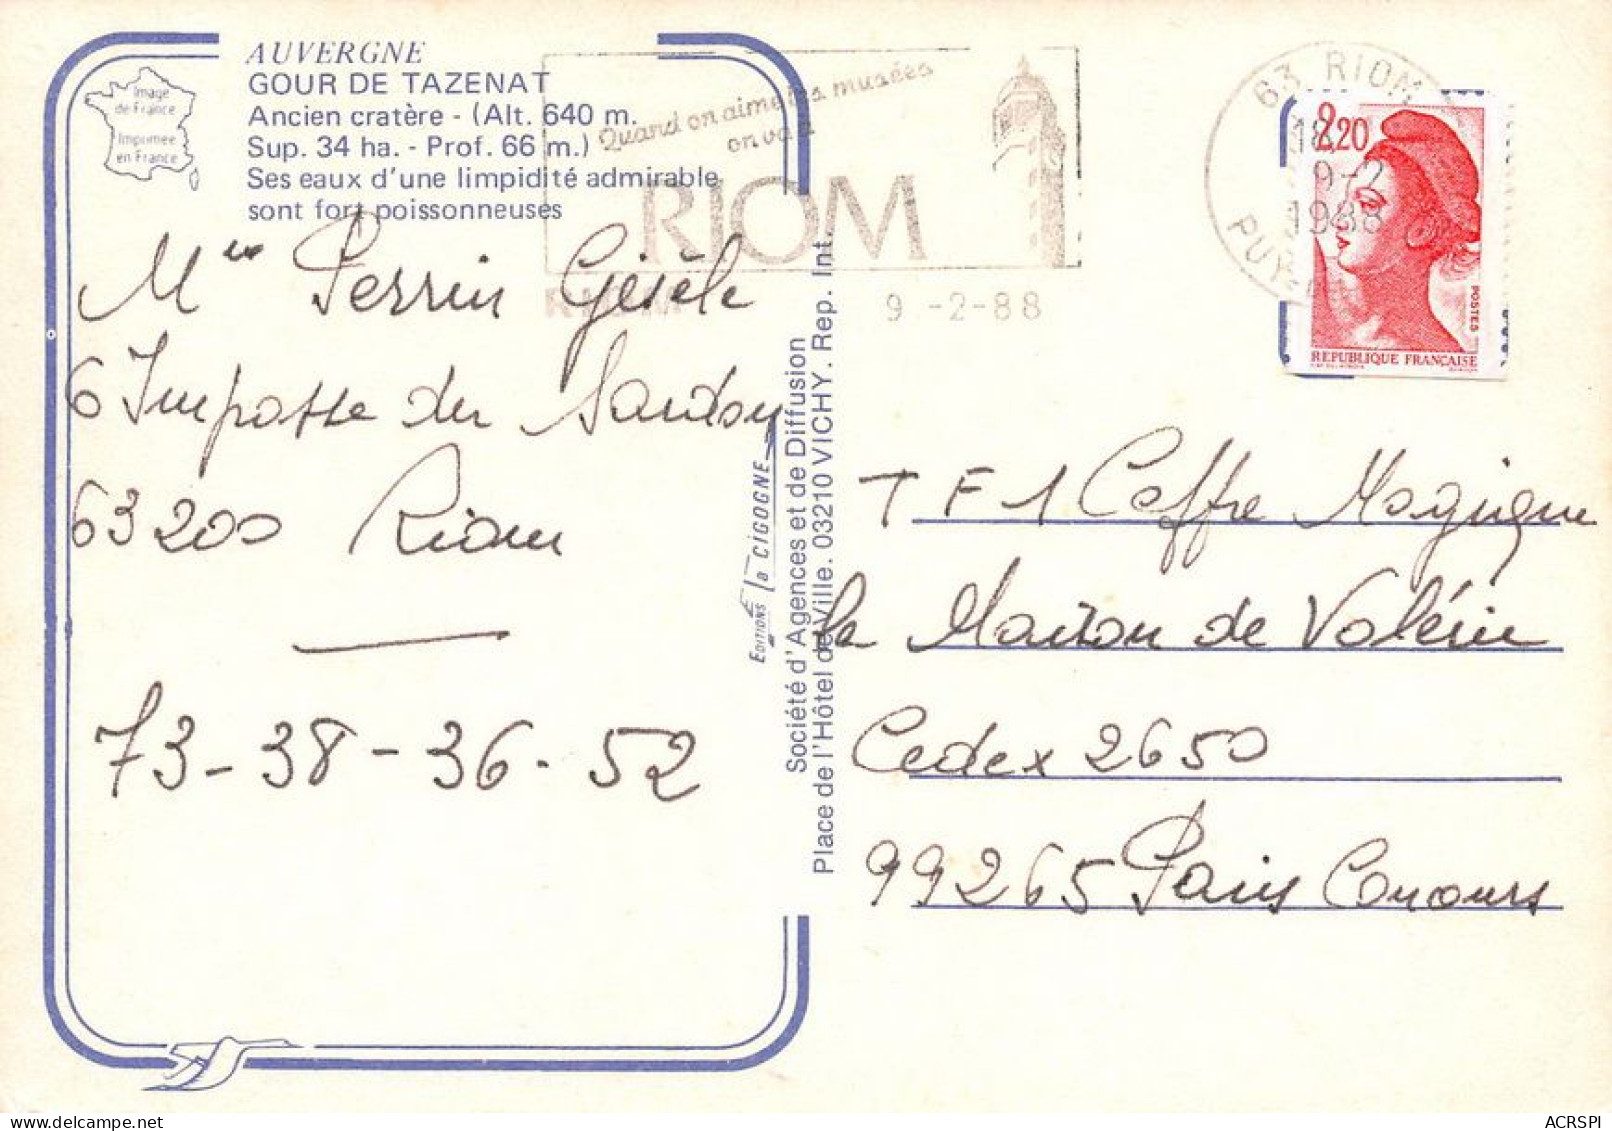 AUVERGNE
GOUR DE TAZENAT
Ancien cratère - (Alt. 640 m.
Sup. 34 ha. - Prof. 66 m.)
Ses eaux d'une limpidité admirable
sont fort poissonneuses
Image
de France
Imprimée
en France
Quand on aime les musées
on va à
RIOM
RIOM
9 -2-88
63 RIOM
18
9-2
1988
PUY
2,20
POSTES
REPUBLIQUE FRANÇAISE
Mme Perrin Gisèle
6 Impasse du Sardon
63200 Riom
73-38-36-52
EDITIONS la CIGOGNE
Société d'Agences et de Diffusion
Place de l'Hôtel de Ville. 03210 VICHY. Rep. Int.
TF1 Coffre Magique
la Maison de Valérie
Cedex 2650
99265 Paris Concours
ACRSPI